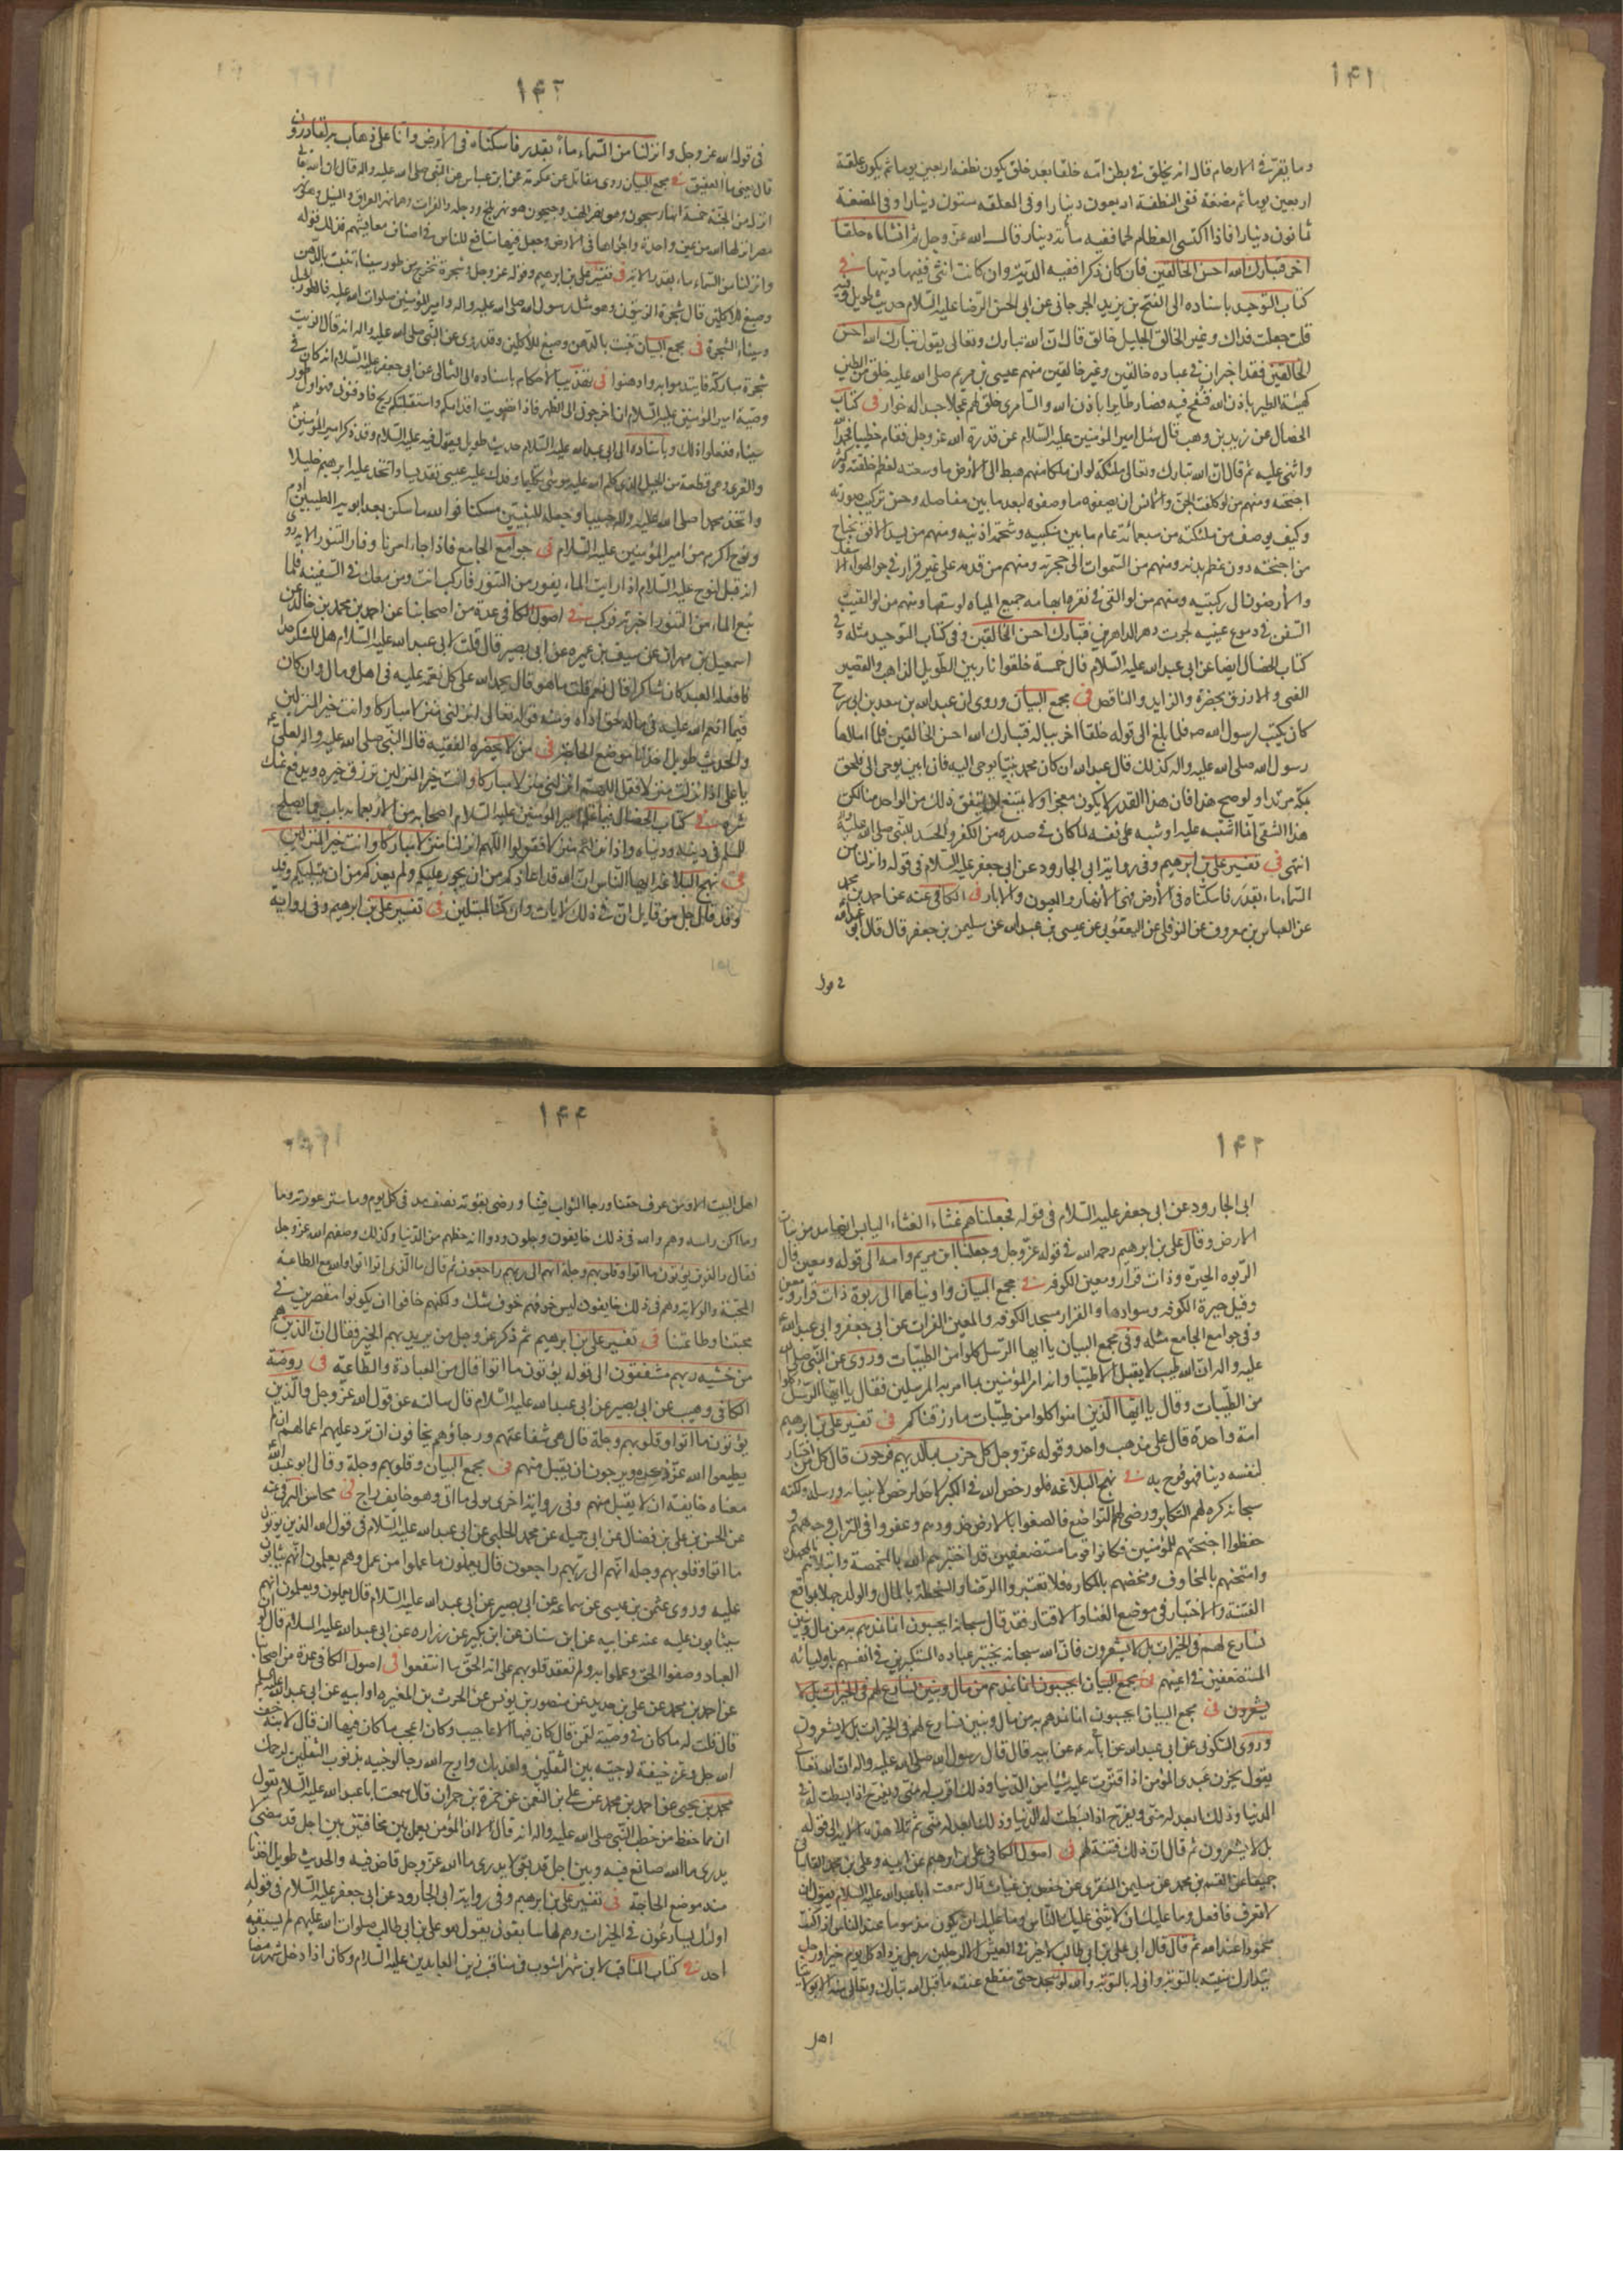 ۱۴۱
وما يقر في الارحام قال انه يخلق في بطن امه خلقا بعد خلق يكون نطفه اربعين يوما ثم يكون علقة
اربعين يوما ثم مضغة ففي النطفة اربعون دينارا وفي العلقه ستون دينارا وفي المضغة
ثمانون دينارا فاذا اكتسى العظام لحما ففيه مأة دينار قال الله عز وجل ثم انشاناه خلقا
اخر فتبارك الله احسن الخالقين فان كان ذكرا ففيه الدية وان كانت انثى ففيها ديتها في
كتاب التوحيد باسناده الى الفتح بن يزيد الجرجاني عن ابى الحسن الرضا عليه السلام حديث طويل وفيه
قلت جعلت فداك وغير الخالق الجليل خالق قال ان الله تبارك وتعالى يقول تبارك الله احسن
الخالقين فقد اخبر ان في عباده خالقين وغير خالقين منهم عيسى بن مريم صلى الله عليه خلق من الطين
كهيئة الطير باذن الله فنفخ فيه فصار طايرا باذن الله والسامرى خلق لهم عجلا جسدا له خوار في كتاب
الخصال عن زيد بن وهب قال سئل امير المؤمنين عليه السلام عن قدرة الله عز وجل فقام خطيبا فحمد الله
واثنى عليه ثم قال ان الله تبارك وتعالى ملئكة لو ان ملكا منهم هبط الى الارض ما وسعته لعظم خلقته وكثرة
اجنحته ومنهم من لو كلفت الجن والانس ان يصفوه ما وصفوه لبعد ما بين مفاصله وحسن تركيب صورته
وكيف يوصف من ملئكته من سبعمائة عام ما بين منكبيه وشحمة اذنيه ومنهم من يسد الافق بجناح
من اجنحته دون عظم بدنه ومنهم من السموات الى حجزته ومنهم من قدمه على غير قرار في جو الهواء الاسفل
والارضون الى ركبتيه ومنهم من لو القى في نقرة ابهامه جميع المياه لوسعتها ومنهم من لو القيت
السفن في دموع عينيه لجرت دهر الداهرين فتبارك الله احسن الخالقين وفي كتاب التوحيد مثله وفي
كتاب الخصال ايضا عن ابى عبد الله عليه السلام قال خمسة خلقوا نارين الطويل الذاهب والقصير
القمى والازرق بخضرة والزايد والناقص في مجمع البيان وروى ان عبد الله بن سعد بن ابى سرح
كان يكتب لرسول الله ص فلما بلغ الى قوله خلقا اخر بباله فتبارك الله احسن الخالقين فلما املاها
رسول الله صلى الله عليه واله كذلك قال عبد الله ان كان محمد نبيا يوحى اليه فانا نبى يوحى الى فلحق
بمكة مرتدا ولو صح هذا فان هذا القدر لا يكون معجزا ولا يمتنع ان يتفق ذلك من الواحد منا لكن
هذا الشقى انما اشتبه عليه او شبه على نفسه لما كان في صدره من الكفر والحسد للنبى صلى الله عليه واله
انتهى في تفسير على بن ابرهيم وفي رواية ابى الجارود عن ابى جعفر عليه السلام في قوله وانزلنا من
السماء ماء بقدر فاسكناه في الارض فهى الانهار والعيون والابار في الكافى عنه عن احمد بن محمد
عن العباس بن معروف عن النوفلى عن اليعقوبى عن عيسى بن عبد الله عن سليمن بن جعفر قال قال ابو عبد الله
في قول
۱۴۲
في قول الله عز وجل وانزلنا من السماء ماء بقدر فاسكناه في الارض وانا على ذهاب به لقادرون
قال يعنى ماء العقيق في مجمع البيان روى مقاتل عن عكرمة عن ابن عباس عن النبى صلى الله عليه واله قال ان الله تعالى
انزل من الجنة خمسة انهار سيحون وهو نهر الهند وجيحون هو نهر بلخ ودجله والفرات وهما نهرا العراق والنيل وهو نهر
مصر انزلها الله من عين واحدة واجراها في الارض وجعل فيها منافع للناس في اصناف معايشهم فذلك قوله
وانزلنا من السماء ماء بقدر الايه في تفسير على بن ابرهيم وقوله عز وجل وشجرة تخرج من طور سيناء تنبت بالدهن
وصبغ للاكلين قال شجرة الزيتون وهو مثل رسول الله صلى الله عليه واله وامير المؤمنين صلوات الله عليه فالطور الجبل
وسيناء الشجرة في مجمع البيان تنبت بالدهن وصبغ للاكلين وقد روى عن النبى صلى الله عليه واله انه قال الزيت
شجرة مباركة فايتدموا به وادهنوا في تهذيب الاحكام باسناده الى الثمالى عن ابى جعفر عليه السلام انه كان في
وصية امير المؤمنين عليه السلام ان اخرجونى الى الظهر فاذا تصوبت اقدامكم واستقبلتكم ريح فادفنونى فهو اول طور
سيناء ففعلوا ذلك وباسناده الى ابى عبد الله عليه السلام حديث طويل يقول فيه عليه السلام وقد ذكر امير المؤمنين
والغرى وهى قطعة من الجبل الذى كلم الله عليه موسى تكليما وقدس عليه عيسى تقديسا واتخذ عليه ابرهيم خليلا
واتخذ محمدا صلى الله عليه واله حبيبا وجعله للنبيين مسكنا فوالله ما سكن بعد ابويه الطيبين آدم
ونوح اكرم من امير المؤمنين عليه السلام في جوامع الجامع فاذا جاء امرنا وفار التنور الايه روى
انه قيل لنوح عليه السلام اذا رايت الماء يفور من التنور فاركب انت ومن معك في السفينه فلما
نبع الماء من التنور اخبرته فركب في اصول الكافى عدة من اصحابنا عن احمد بن محمد بن خالد عن
اسمعيل بن مهران عن سيف بن عميره عن ابى بصير قال قلت لابى عبد الله عليه السلام هل للشكر حد
اذا فعله العبد كان شاكرا قال نعم قلت ما هو قال يحمد الله على كل نعمة عليه في اهل ومال وان كان
فيما انعم الله عليه في ماله حق اداه ومنه قوله تعالى رب انزلنى منزلا مباركا وانت خير المنزلين
والحديث طويل اخذنا موضع الحاجة في من لا يحضره الفقيه قال النبى صلى الله عليه واله لعلى
يا على اذا نزلت منزلا فقل اللهم انزلنى منزلا مباركا وانت خير المنزلين ترزق خيره ويدفع عنك
شره في كتاب الخصال فيما علم امير المؤمنين عليه السلام اصحابه من الاربعمائة باب مما يصلح
للمسلم في دينه ودنياه واذا نزلتم منزلا فقولوا اللهم انزلنا منزلا مباركا وانت خير المنزلين
في نهج البلاغه ايها الناس ان الله قد اعاذكم من ان يجور عليكم ولم يعذكم من ان يبتليكم وقد
وقد قال جل من قايل ان في ذلك لايات وان كنا لمبتلين في تفسير على بن ابرهيم وفي رواية
۱۴۳
ابى الجارود عن ابى جعفر عليه السلام في قوله فجعلناهم غثاء الغثاء اليابس الهامد من نبات
الارض وقال على بن ابرهيم رحمه الله في قوله عز وجل وجعلنا ابن مريم وامه الى قوله ومعين قال
الربوه الحيرة وذات قرار ومعين الكوفه في مجمع البيان واويناهما الى ربوة ذات قرار ومعين
وقيل حيرة الكوفه وسوادها والقرار مسجد الكوفه والمعين الفرات عن ابى جعفر وابى عبد الله
وفي جوامع الجامع مثله وفي مجمع البيان يا ايها الرسل كلوا من الطيبات وروى عن النبى صلى الله
عليه واله ان الله طيب لا يقبل الا طيبا وانه امر المؤمنين بما امر به المرسلين فقال يا ايها الرسل كلوا
من الطيبات وقال يا ايها الذين امنوا كلوا من طيبات ما رزقناكم في تفسير على بن ابرهيم
امة واحدة قال على مذهب واحد وقوله عز وجل كل حزب بما لديهم فرحون قال كل من اختار
لنفسه دينا فهو فرح به في نهج البلاغه فلو رخص الله في الكبر لاحد لرخص لانبيائه ورسله ولكنه
سبحانه كره لهم التكابر ورضى لهم التواضع فالصقوا بالارض خدودهم وعفروا في التراب وجوههم و
خفضوا اجنحتهم للمؤمنين فكانوا قوما مستضعفين قد اختبرهم الله بالمخمصة وابتلاهم بالمجهدة
وامتحنهم بالمخاوف ومخضهم بالمكاره فلا تعتبروا الرضا والسخط بالمال والولد جهلا بمواقع
الفتنة والاختبار في موضع الغنا والاقتار فقد قال سبحانه ايحسبون انما نمدهم به من مال وبنين
نسارع لهم في الخيرات بل لا يشعرون فان الله سبحانه يختبر عباده المستكبرين في انفسهم باوليائه
المستضعفين في اعينهم في مجمع البيان ايحسبون انما نمدهم من مال وبنين نسارع لهم في الخيرات بل لا
يشعرون في مجمع البيان ايحسبون انما نمدهم به من مال وبنين نسارع لهم في الخيرات بل لا يشعرون
وروى السكونى عن ابى عبد الله عن ابائه عن ابيه قال قال رسول الله صلى الله عليه واله ان الله تعالى
يقول يحزن عبدى المؤمن اذا اقترت عليه شيئا من الدنيا وذلك اقرب له منى ويفرح اذا بسطت له في
الدنيا وذلك ابعد له منى ويفرح اذا بسطت له الدنيا وذلك ابعد له منى ثم تلا هذه الايه الى قوله
بل لا يشعرون ثم قال ان ذلك فتنة لهم في اصول الكافى على بن ابرهيم عن ابيه وعلى بن محمد القاسانى
جميعا عن القسم بن محمد عن سليمن المنقرى عن حفص بن غياث قال سمعت ابا عبد الله عليه السلام يقول ان
لا تعرف فافعل وما عليك ان لا يثنى عليك الناس وما عليك ان تكون مذموما عند الناس اذا كنت
محمودا عند الله ثم قال قال ابى على بن ابى طالب لا خير في العيش الا لرجلين رجل يزداد كل يوم خيرا ورجل
يتدارك منيته بالتوبة وانى له بالتوبة والله لو سجد حتى ينقطع عنقه ما قبل الله تبارك وتعالى منه الا بولايتنا
اهل
۱۴۴
اهل البيت الا ومن عرف حقنا ورجا الثواب فينا ورضى بقوته نصف مد في كل يوم وما ستر عورته وما
وما اكن راسه وهم والله في ذلك خايفون وجلون ودوا انه حظهم من الدنيا وكذلك وصفهم الله عز وجل
فقال والذين يؤتون ما اتوا وقلوبهم وجلة انهم الى ربهم راجعون ثم قال ما الذى اتوا اتوا والله مع الطاعة
المحبة والولاية وهم في ذلك خايفون ليس خوفهم خوف شك ولكنهم خافوا ان يكونوا مقصرين في
محبتنا وطاعتنا في تفسير على بن ابرهيم ثم ذكر عز وجل من يريد بهم الخير فقال ان الذين هم
من خشية ربهم مشفقون الى قوله يؤتون ما اتوا قال من العبادة والطاعة في روضة
الكافى وهيب عن ابى بصير عن ابى عبد الله عليه السلام قال سالته عن قول الله عز وجل والذين
يؤتون ما اتوا وقلوبهم وجلة قال هى شفاعتهم ورجاؤهم يخافون ان ترد عليهم اعمالهم ان لم
يطيعوا الله عز ذكره ويرجون ان يقبل منهم في مجمع البيان وقلوبهم وجلة وقال ابو عبد الله
معناه خايفة ان لا يقبل منهم وفي رواية اخرى يؤتى ما اتى وهو خايف راج في محاسن البرقى عنه
عن الحسن بن على بن فضال عن ابى جميله عن محمد الحلبى عن ابى عبد الله عليه السلام في قول الله الذين يؤتون
ما اتوا وقلوبهم وجله انهم الى ربهم راجعون قال يعلمون ما عملوا من عمل وهم يعلمون انهم يثابون
عليه وروى عثمن بن عيسى عن سماعة عن ابى بصير عن ابى عبد الله عليه السلام قال يعملون ويعلمون انهم
سيثابون عليه عنه عن ابيه عن ابن سنان عن ابن بكير عن زراره عن ابى عبد الله عليه السلام قال لو ان
العباد وصفوا الحق وعملوا به ولم تعقد قلوبهم على انه الحق ما انتفعوا في اصول الكافى عدة من اصحابنا
عن احمد بن محمد عن على بن حديد عن منصور بن يونس عن الحرث بن المغيره او ابيه عن ابى عبد الله عليه السلم
قال قلت له ما كان في وصية لقمن قال كان فيها الاعاجيب وكان اعجب ما كان فيها ان قال لابنه خف
الله جل وعز خيفة لو جئته ببر الثقلين لعذبك وارج الله رجا لو جئته بذنوب الثقلين لرحمك
محمد بن يحيى عن احمد بن محمد عن على بن النعمن عن حمزة بن حمران قال سمعت ابا عبد الله عليه السلام يقول
ان مما حفظ من خطب النبى صلى الله عليه واله انه قال الا ان المؤمن يعمل بين مخافتين بين اجل قد مضى لا
يدرى ما الله صانع فيه وبين اجل قد بقى لا يدرى ما الله عز وجل قاض فيه والحديث طويل اخذنا
منه موضع الحاجة في تفسير على بن ابرهيم وفي رواية ابى الجارود عن ابى جعفر عليه السلام في قوله
اولئك يسارعون في الخيرات وهم لها سابقون يقول هو على بن ابى طالب صلوات الله عليهم لم يسبقه
احد في كتاب المناقب لابن شهراشوب في مناقب زين العابدين عليه السلام وكان اذا دخل شهر رمضان